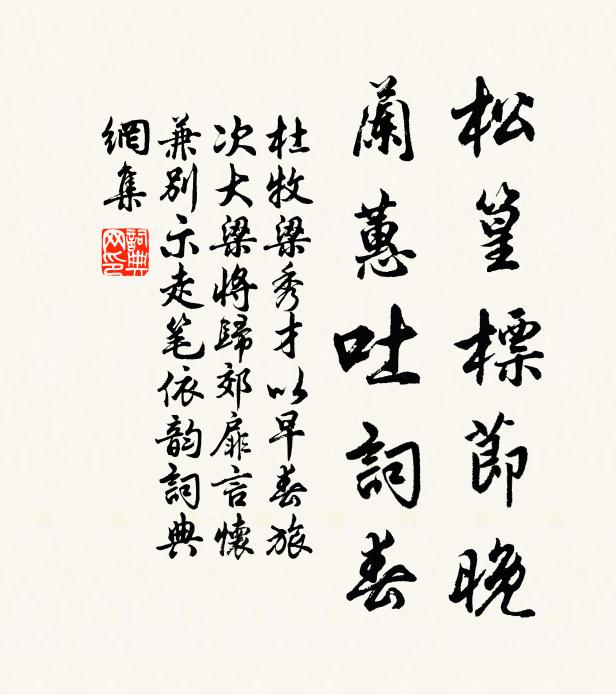 松篁標節晚
蘭蕙吐詞春
杜牧梁秀才以早春旅
次大梁將歸郊扉言懷
兼別示走笔依韵詞典
網集
詞典
网印